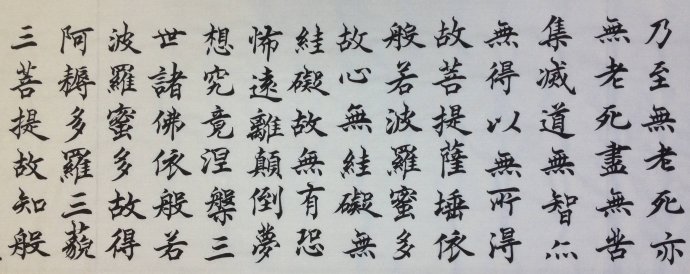 乃至無老死亦
無老死盡無苦
集滅道無智亦
無得以無所得
故菩提薩埵依
般若波羅蜜多
故心無絓礙無
絓礙故無有恐
怖遠離顛倒夢
想究竟涅槃三
世諸佛依般若
波羅蜜多故得
阿耨多羅三藐
三菩提故知般